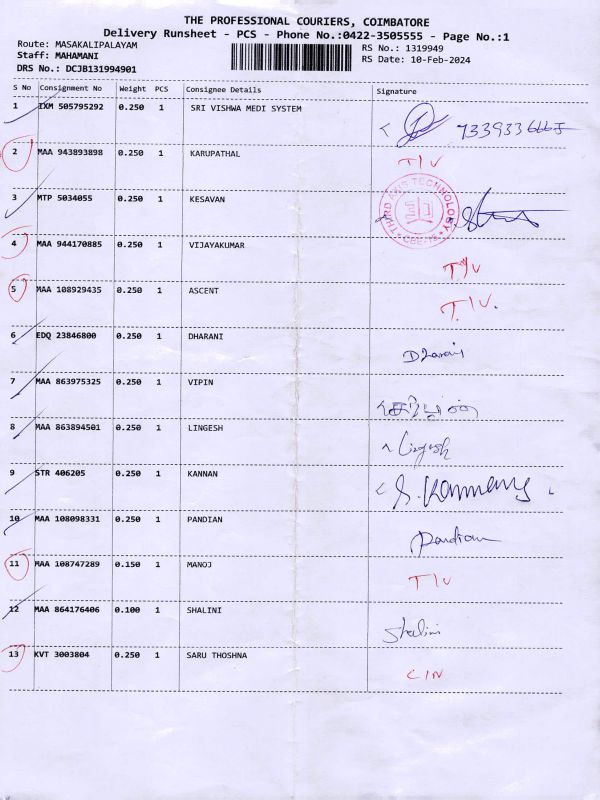 THE PROFESSIONAL COURIERS, COIMBATORE
Delivery Runsheet - PCS - Phone No.:0422-3505555 - Page No.:1
Route: MASAKALIPALAYAM RS No.: 1319949
Staff: MAHAMANI RS Date: 10-Feb-2024
DRS No.: DCJB131994901
S No Consignment No Weight PCS Consignee Details Signature
1 IXM 505795292 0.250 1 SRI VISHWA MEDI SYSTEM
2 MAA 943893898 0.250 1 KARUPATHAL T/V
3 MTP 5034055 0.250 1 KESAVAN THIRD AXIS TECHNOLOGY CBE-15
4 MAA 944170885 0.250 1 VIJAYAKUMAR T/V
5 MAA 108929435 0.250 1 ASCENT T/V.
6 EDQ 23846800 0.250 1 DHARANI Dharani
7 MAA 863975325 0.250 1 VIPIN
8 MAA 863894501 0.250 1 LINGESH Lingesh
9 STR 406205 0.250 1 KANNAN
10 MAA 108098331 0.250 1 PANDIAN Pandian
11 MAA 108747289 0.150 1 MANOJ T/V
12 MAA 864176406 0.100 1 SHALINI Shalini
13 KVT 3003804 0.250 1 SARU THOSHNA C/N